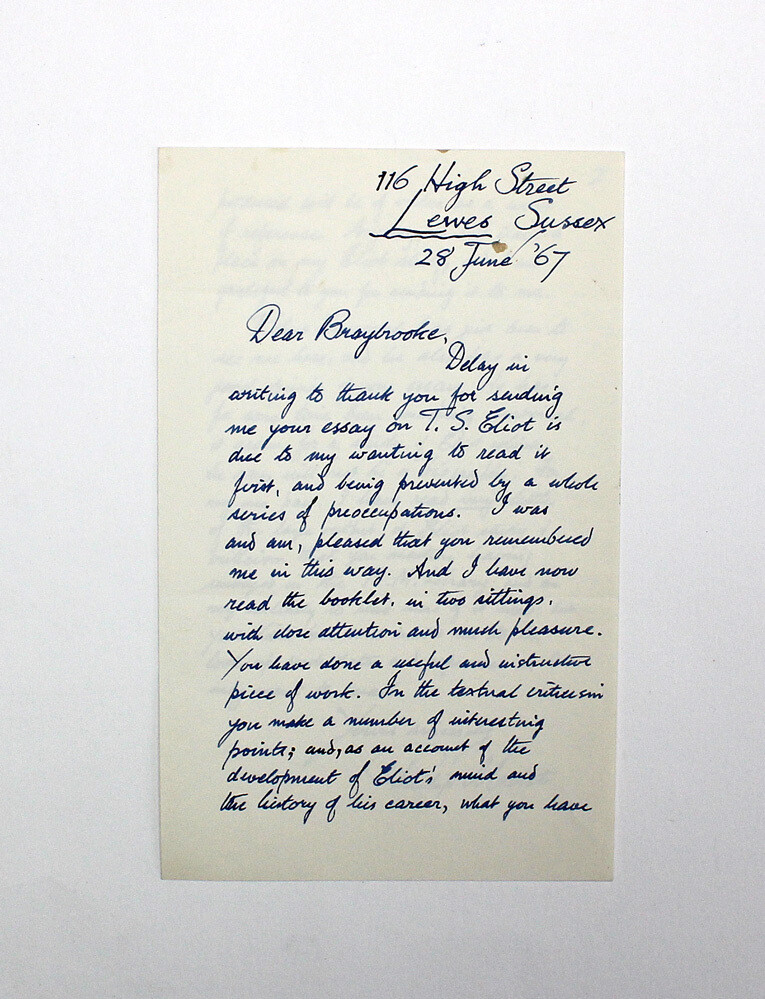 116 High Street
Lewes Sussex
28 June '67
Dear Braybrooke,
Delay in
writing to thank you for sending
me your essay on T. S. Eliot is
due to my wanting to read it
first, and being prevented by a whole
series of preoccupations. I was
and am, pleased that you remembered
me in this way. And I have now
read the booklet, in two sittings,
with close attention and much pleasure.
You have done a useful and instructive
piece of work. In the textual criticism
you make a number of interesting
points; and, as an account of the
development of Eliot's mind and
the history of his career, what you have